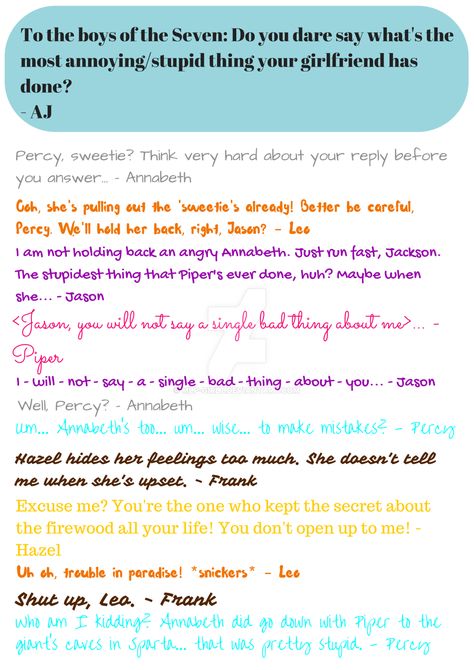 To the boys of the Seven: Do you dare say what's the
most annoying/stupid thing your girlfriend has
done?
- AJ
Percy, sweetie? Think very hard about your reply before
you answer... - Annabeth
Ooh, she's pulling out the 'sweetie's already! Better be careful,
Percy. We'll hold her back, right, Jason? - Leo
I am not holding back an angry Annabeth. Just run fast, Jackson.
The stupidest thing that Piper's ever done, huh? Maybe when
she... - Jason
<Jason, you will not say a single bad thing about me>... -
Piper
I - will - not - say - a - single - bad - thing - about - you... - Jason
Well, Percy? - Annabeth
um... Annabeth's too... um... wise... to make mistakes? - Percy
Hazel hides her feelings too much. She doesn't tell
me when she's upset. - Frank
Excuse me? You're the one who kept the secret about
the firewood all your life! You don't open up to me! -
Hazel
Uh oh, trouble in paradise! *snickers* - Leo
Shut up, Leo. - Frank
who am I kidding? Annabeth did go down with Piper to the
giant's caves in Sparta... that was pretty stupid. - Percy